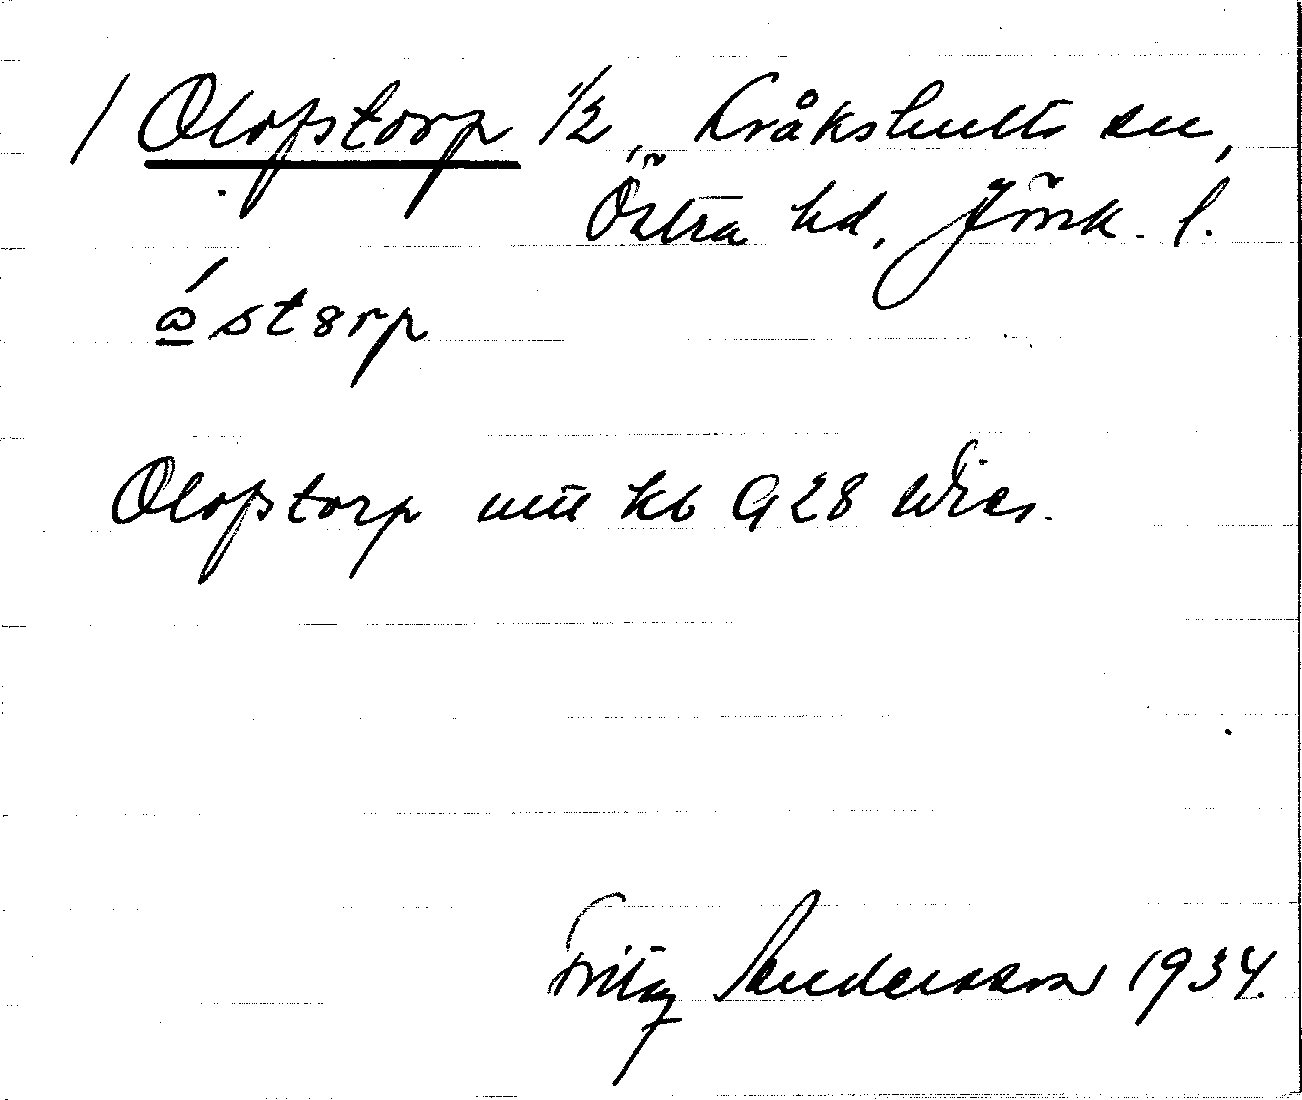 / Olofstorp 1/2, Kråkshults sn,
Östra hd, Jönk. l.
óstorp
Olofstorp utt kb G 28
Fritz Andersson 1934.